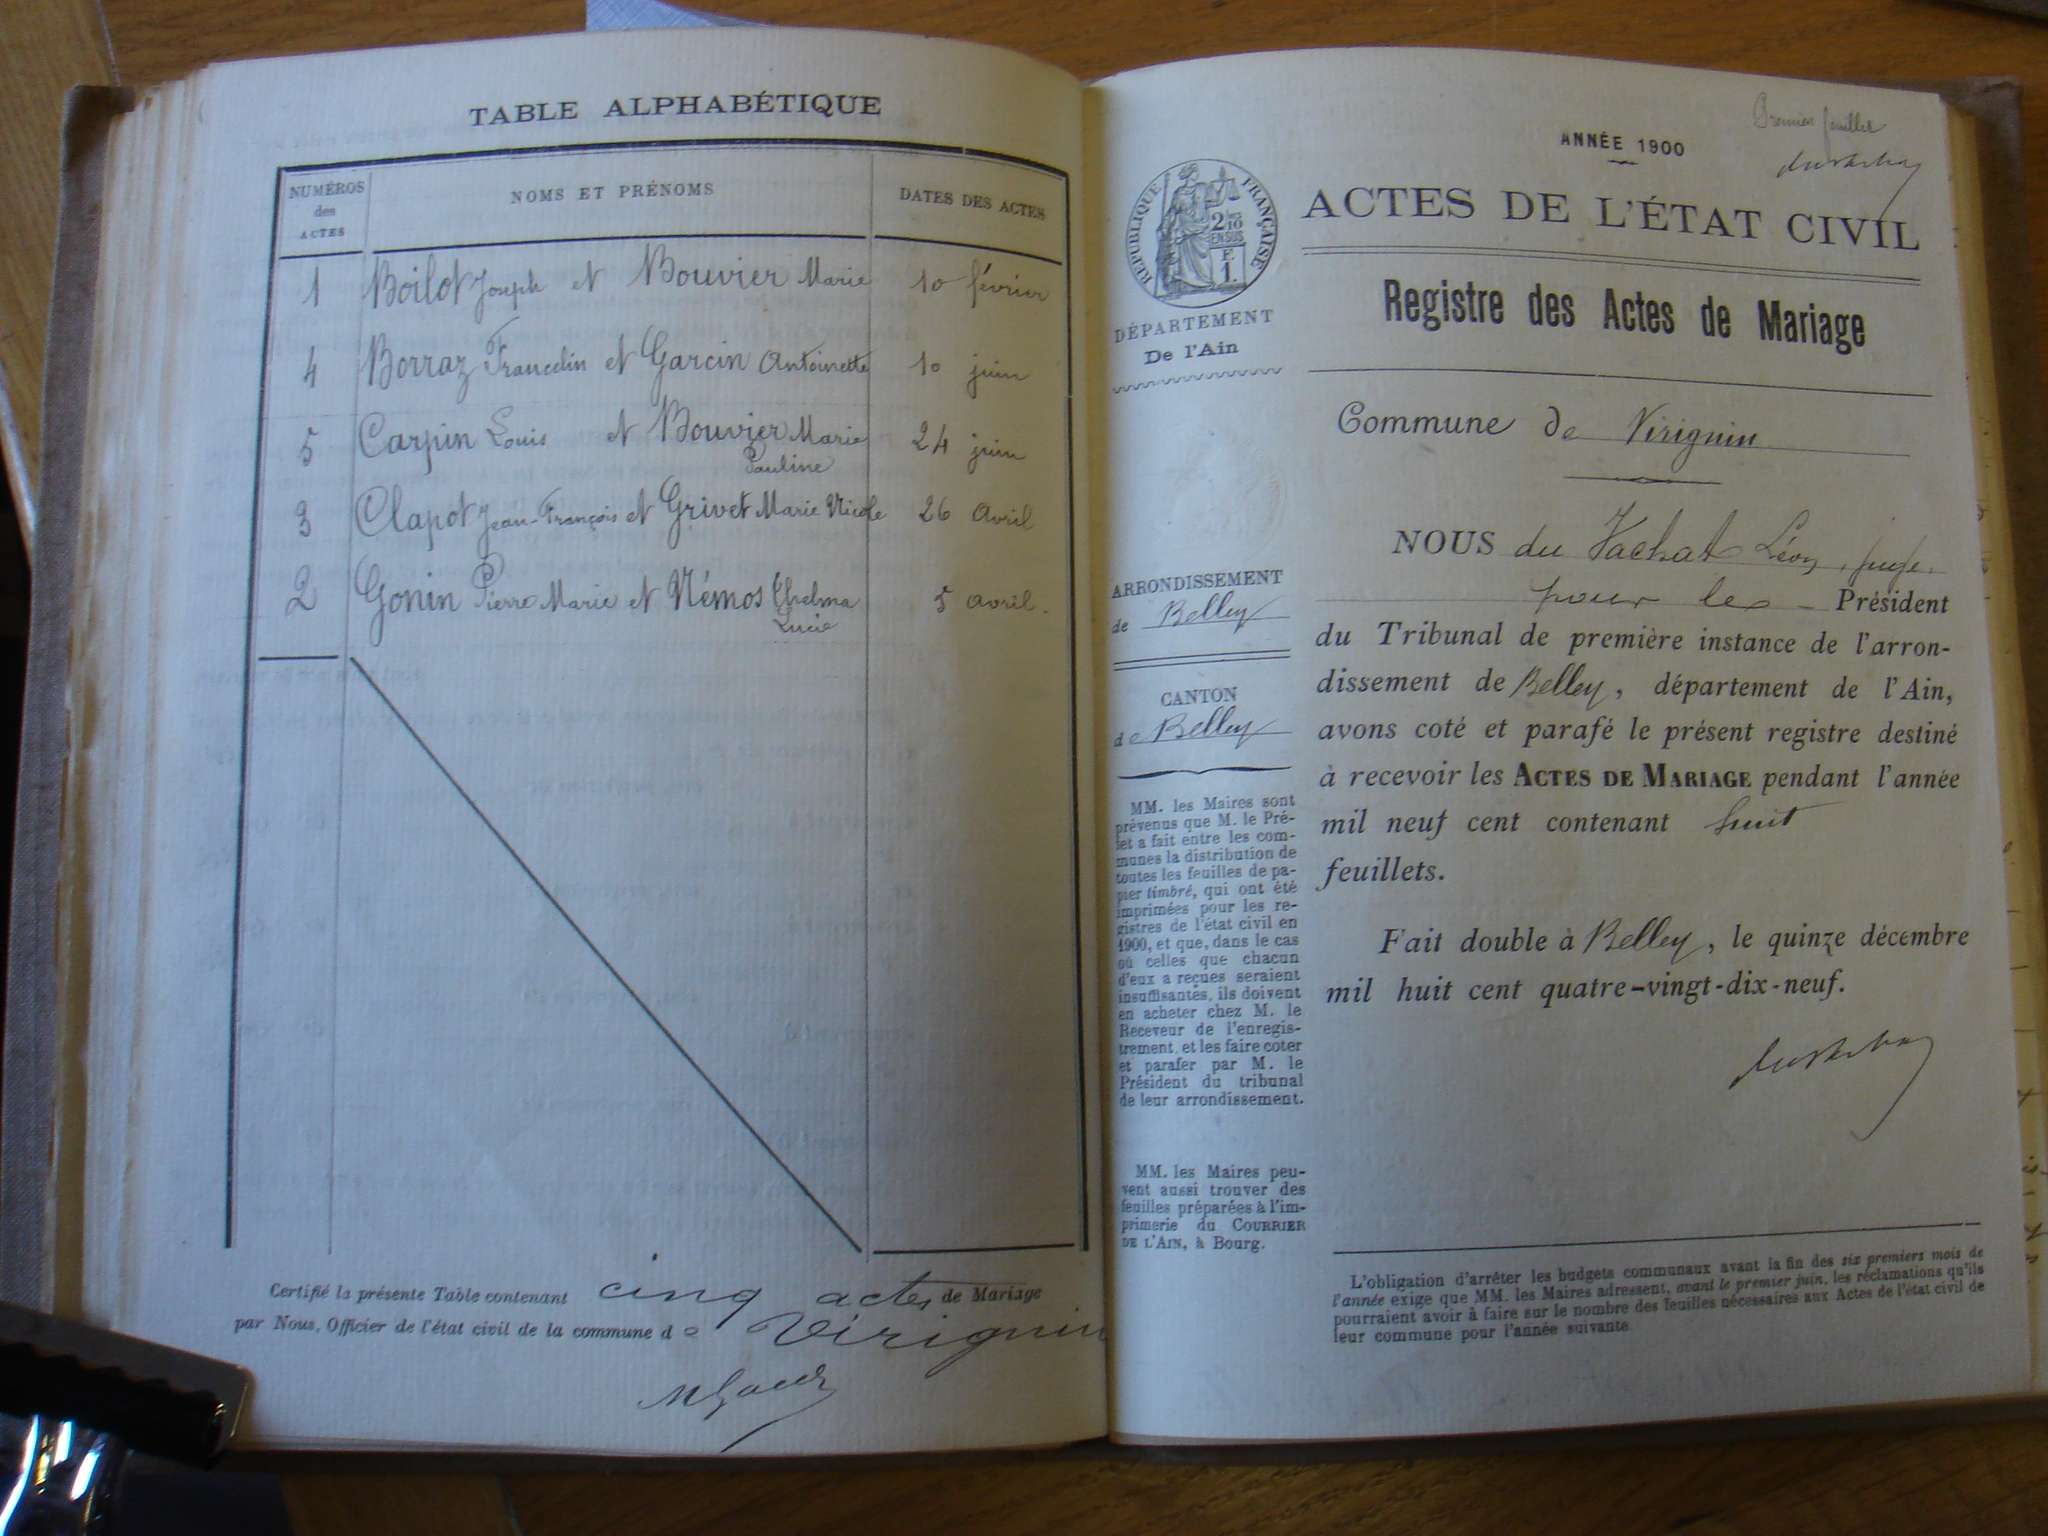 TABLE ALPHABÉTIQUE
NUMÉROS des ACTES
NOMS ET PRÉNOMS
DATES DES ACTES
1 Boilot Joseph et Bouvier Marie 10 février
4 Borraz Francelin et Garcin Antoinette 10 juin
5 Carpin Louis et Bouvier Marie Pauline 24 juin
3 Clapot Jean-François et Grivet Marie Nicole 26 Avril
2 Gonin Pierre Marie et Némos Thelma Lucie 5 avril.
Certifié la présente Table contenant cinq actes de Mariage
par Nous, Officier de l'état civil de la commune de Virignin
Premier feuillet
ANNÉE 1900
ACTES DE L'ÉTAT CIVIL
Registre des Actes de Mariage
RÉPUBLIQUE FRANÇAISE
2/10 EN SUS
F. 1.
DÉPARTEMENT
De l'Ain
Commune de Virignin
NOUS du Vachat Léon, juge
pour le Président
du Tribunal de première instance de l'arron-
dissement de Belley, département de l'Ain,
avons coté et parafé le présent registre destiné
à recevoir les ACTES DE MARIAGE pendant l'année
mil neuf cent contenant huit
feuillets.
Fait double à Belley, le quinze décembre
mil huit cent quatre-vingt-dix-neuf.
ARRONDISSEMENT
de Belley
CANTON
de Belley
MM. les Maires sont
prévenus que M. le Pré-
fet a fait entre les com-
munes la distribution de
toutes les feuilles de pa-
pier timbré, qui ont été
imprimées pour les re-
gistres de l'état civil en
1900, et que, dans le cas
où celles que chacun
d'eux a reçues seraient
insuffisantes, ils doivent
en acheter chez M. le
Receveur de l'enregis-
trement, et les faire coter
et parafer par M. le
Président du tribunal
de leur arrondissement.
MM. les Maires peu-
vent aussi trouver des
feuilles préparées à l'im-
primerie du COURRIER
DE L'AIN, à Bourg.
L'obligation d'arrêter les budgets communaux avant la fin des six premiers mois de
l'année exige que MM. les Maires adressent, avant le premier juin, les réclamations qu'ils
pourraient avoir à faire sur le nombre des feuilles nécessaires aux Actes de l'état civil de
leur commune pour l'année suivante